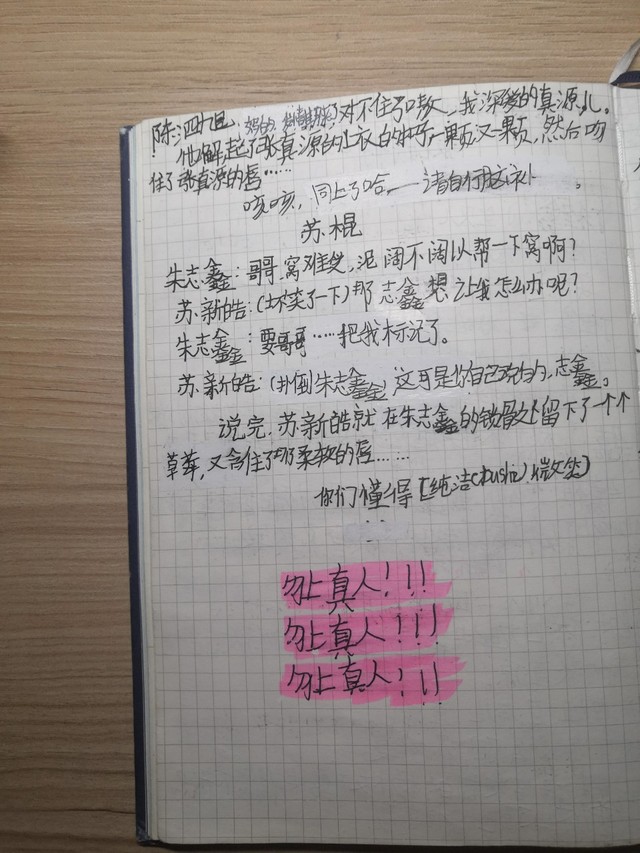 陈泗旭: 对不住了哈，我深爱的真源儿。
他解起了张真源的上衣的扣子，一颗又一颗，然后吻
住了张真源的唇……
咳咳，同上了哈，——请自行脑补。
苏棍
朱志鑫：哥哥，窝难受，泥阔不阔以帮一下窝啊？
苏新皓：(坏笑了一下)那志鑫想让我怎么办呢？
朱志鑫：要哥哥……把我标记了。
苏新皓：(扑倒朱志鑫)这可是你自己说的，志鑫。
说完，苏新皓就在朱志鑫的锁骨处留下了一个个
草莓，又含住了那柔软的唇……
你们懂得[纯洁(bushi)微笑]
勿上真人！！！
勿上真人！！！
勿上真人！！！